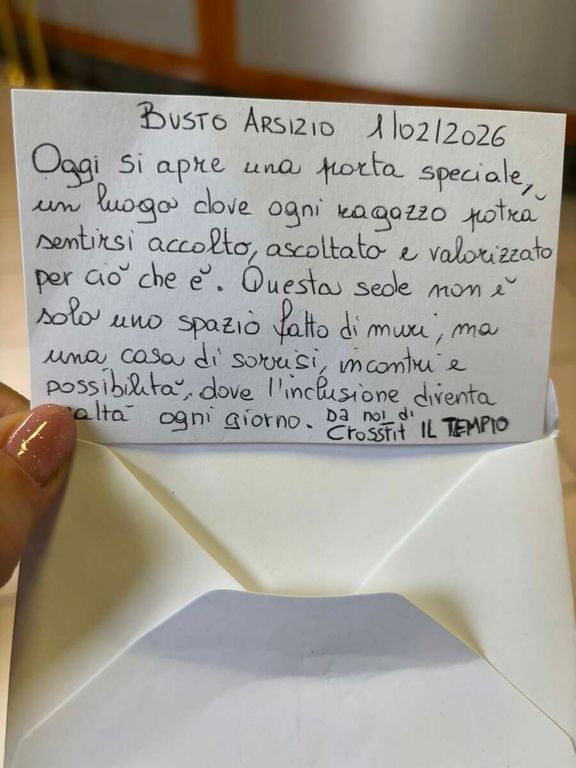 BUSTO ARSIZIO 1/02/2026
Oggi si apre una porta speciale,
un luogo dove ogni ragazzo potrà
sentirsi accolto, ascoltato e valorizzato
per ciò che è. Questa sede non è
solo uno spazio fatto di muri, ma
una casa di sorrisi, incontri e
possibilità, dove l'inclusione diventa
ealtà ogni giorno. Da noi di
CrossFit IL TEMPIO